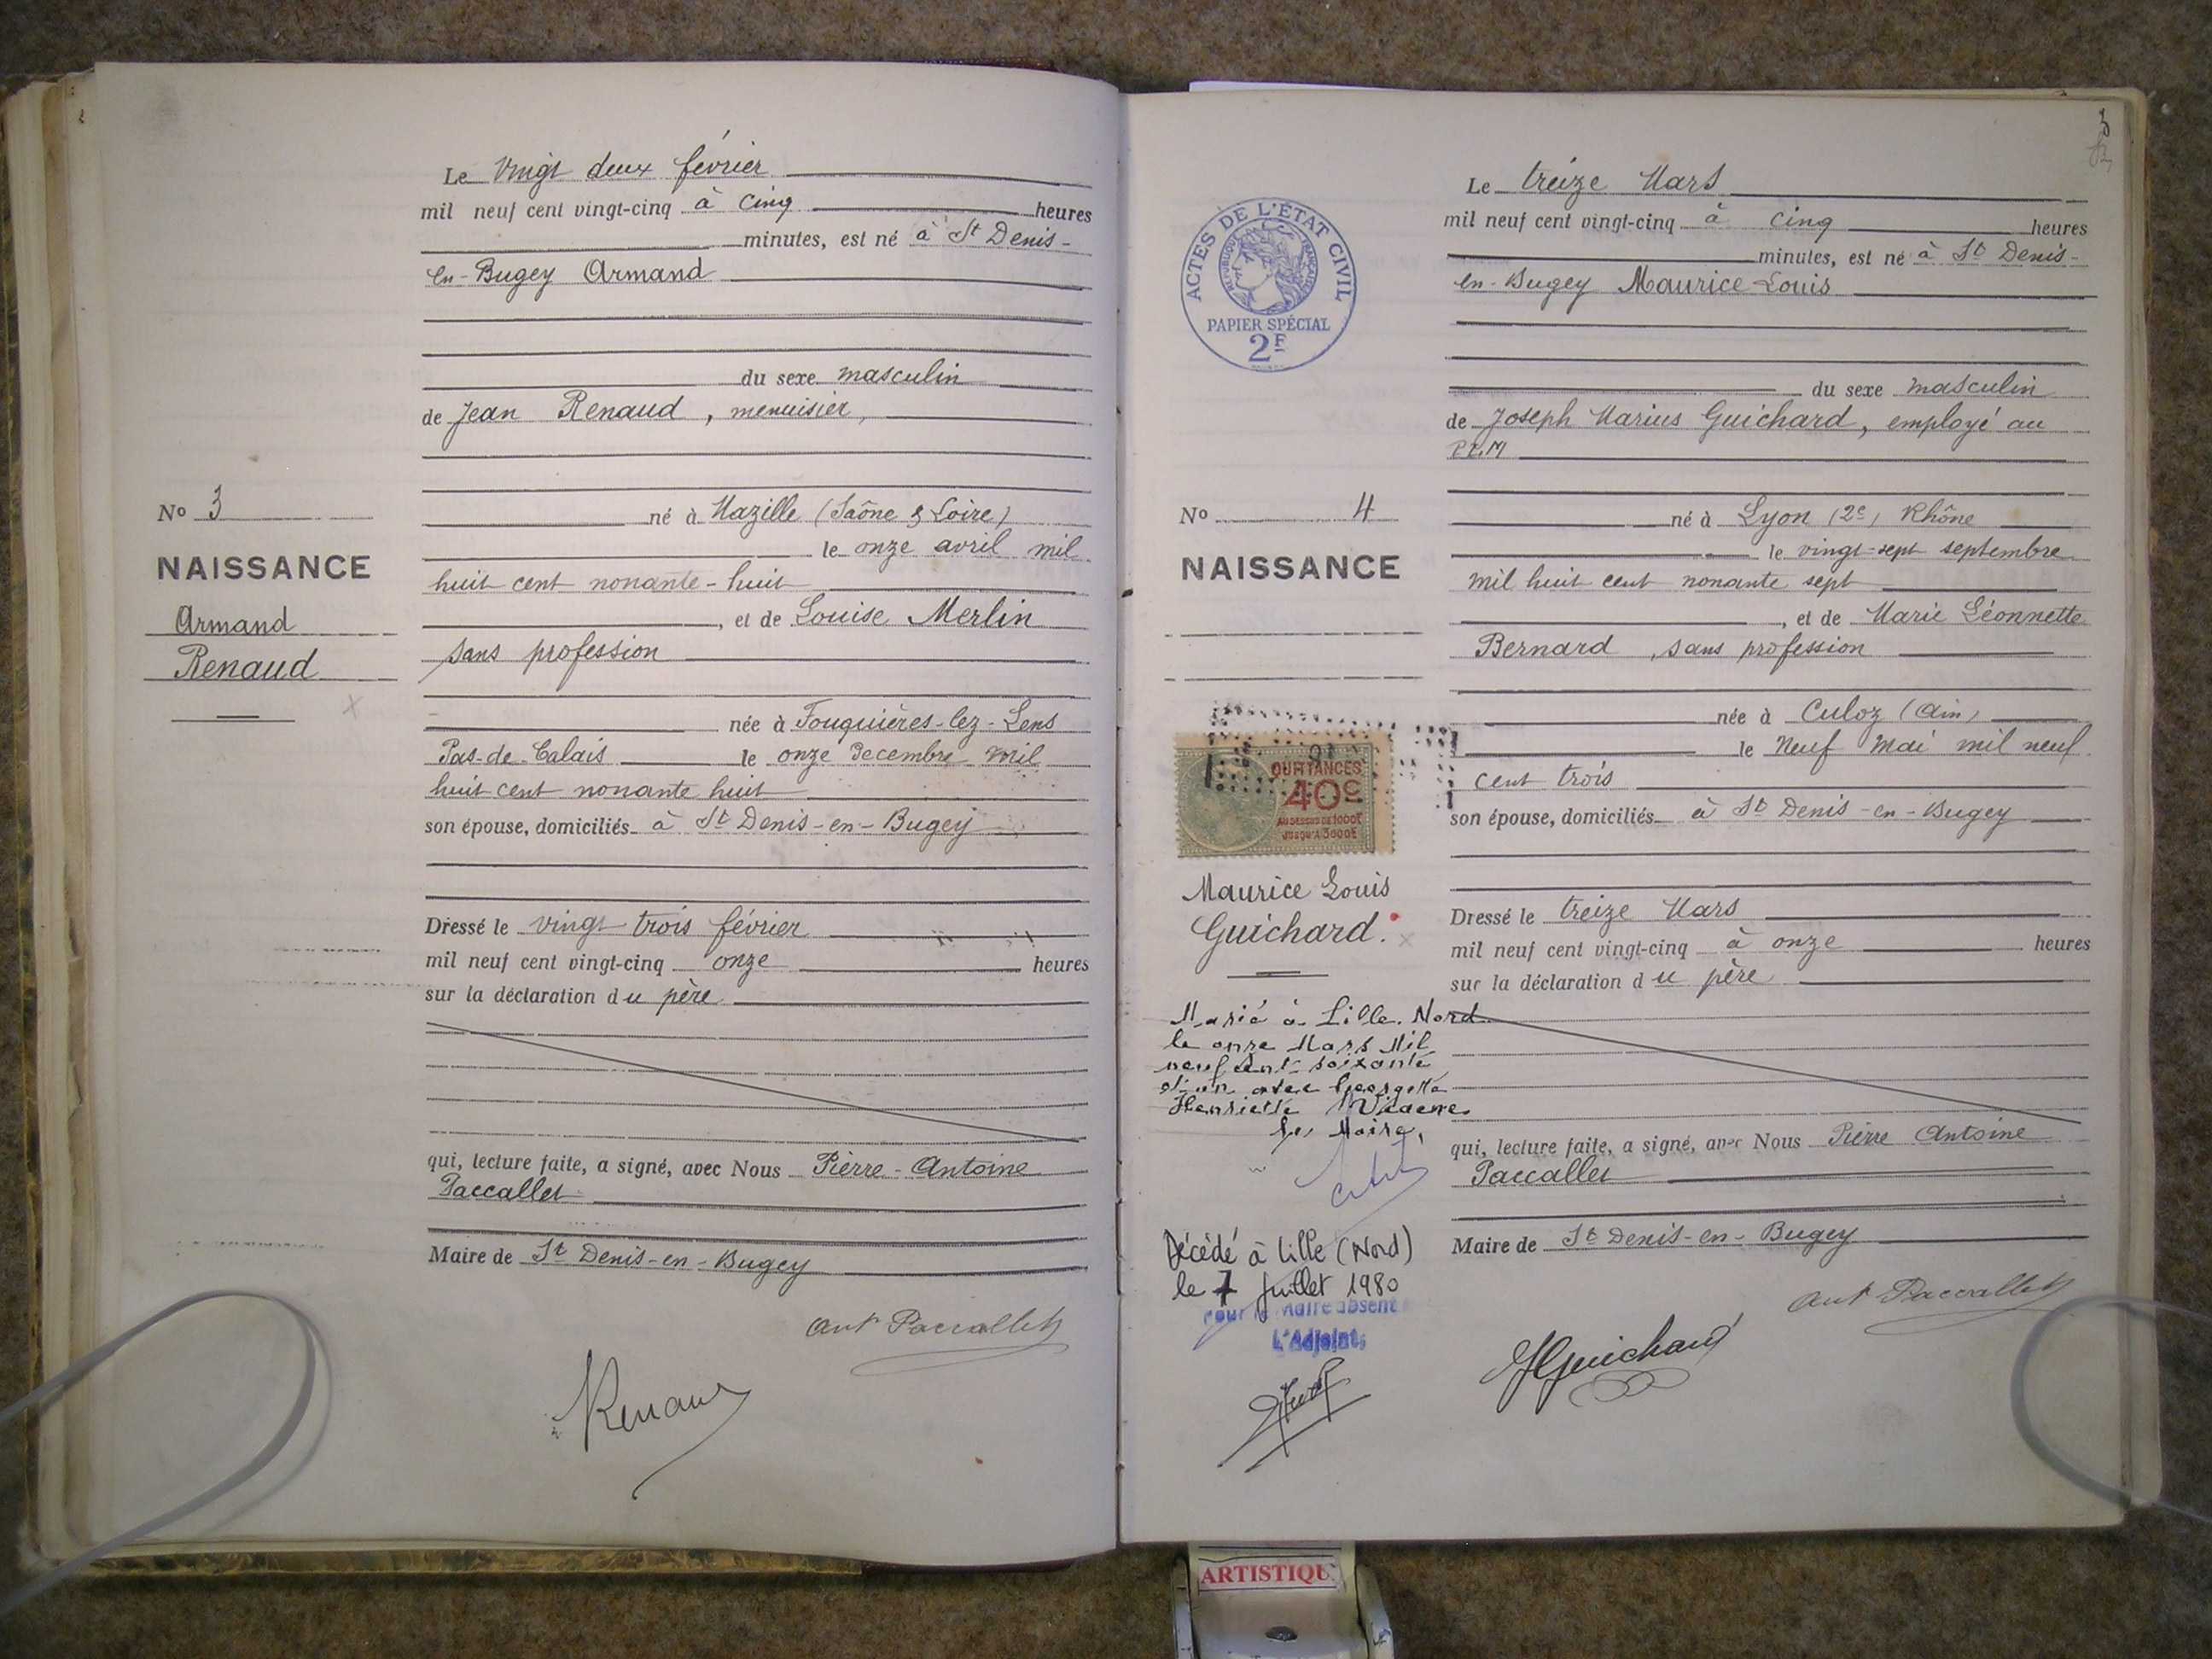 Le vingt deux février
mil neuf cent vingt-cinq à cinq heures
minutes, est né à St Denis-
en-Bugey Armand
du sexe masculin
de Jean Renaud, menuisier,
né à Mazille (Saône & Loire)
le onze avril mil
huit cent nonante-huit
, et de Louise Merlin
sans profession
née à Fouquières-lez-Lens
Pas-de-Calais le onze Decembre mil
huit cent nonante huit
son épouse, domiciliés à St Denis-en-Bugey
Dressé le vingt trois février
mil neuf cent vingt-cinq onze heures
sur la déclaration du père
qui, lecture faite, a signé, avec Nous Pierre-Antoine
Paccallet
Maire de St Denis-en-Bugey
Ant Paccallet
Renaud
No 3
NAISSANCE
Armand
Renaud
Le treize Mars
mil neuf cent vingt-cinq à cinq heures
minutes, est né à St Denis-
en-Bugey Maurice-Louis
du sexe masculin
de Joseph Marius Guichard, employé au
P.L.M
né à Lyon (2e) Rhône
le vingt-sept septembre
mil huit cent nonante sept
, et de Marie Léonnette
Bernard, sans profession
née à Culoz (Ain)
le Neuf Mai mil neuf
cent trois
son épouse, domiciliés à St Denis-en-Bugey
Dressé le treize Mars
mil neuf cent vingt-cinq à onze heures
sur la déclaration du père
qui, lecture faite, a signé, avec Nous Pierre Antoine
Paccallet
Maire de St Denis-en-Bugey
Ant Paccallet
JGuichard
ACTES DE L'ÉTAT CIVIL
RÉPUBLIQUE FRANÇAISE
PAPIER SPÉCIAL
2F
No 4
NAISSANCE
QUITTANCES
40c
AU DESSUS DE 1000F
JUSQU'À 3000F
Maurice Louis
Guichard.
Marié à Lille. Nord
le onze Mars Mil
neuf cent soixante
et un avec Georgette
Henriette
Le Maire,
Décédé à Lille (Nord)
le 7 Juillet 1980
Pour le Maire absent
L'Adjoint,
ARTISTIQU